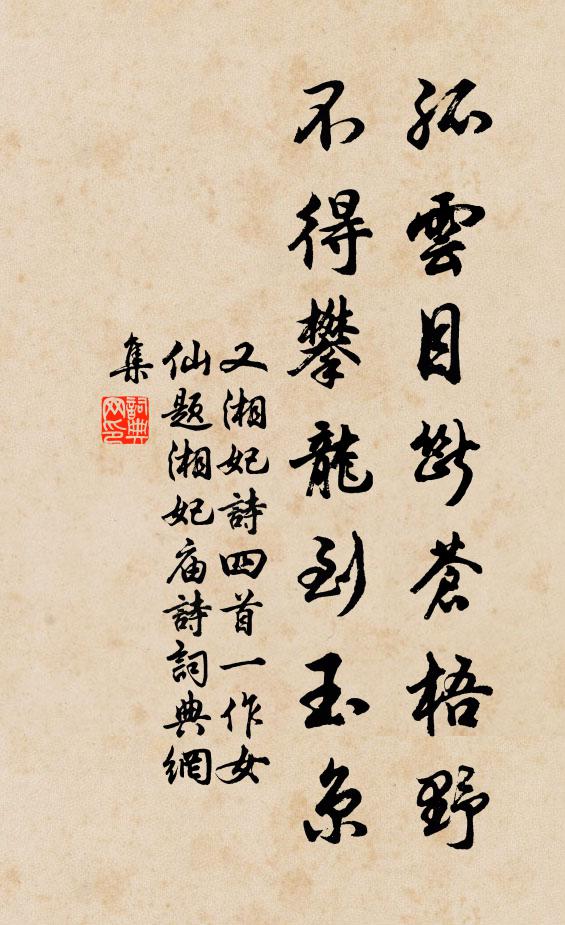 孤雲目斷蒼梧野
不得攀龍到玉京
又湘妃詩四首一作女
仙題湘妃庙詩詞典網
集
詞典
网印